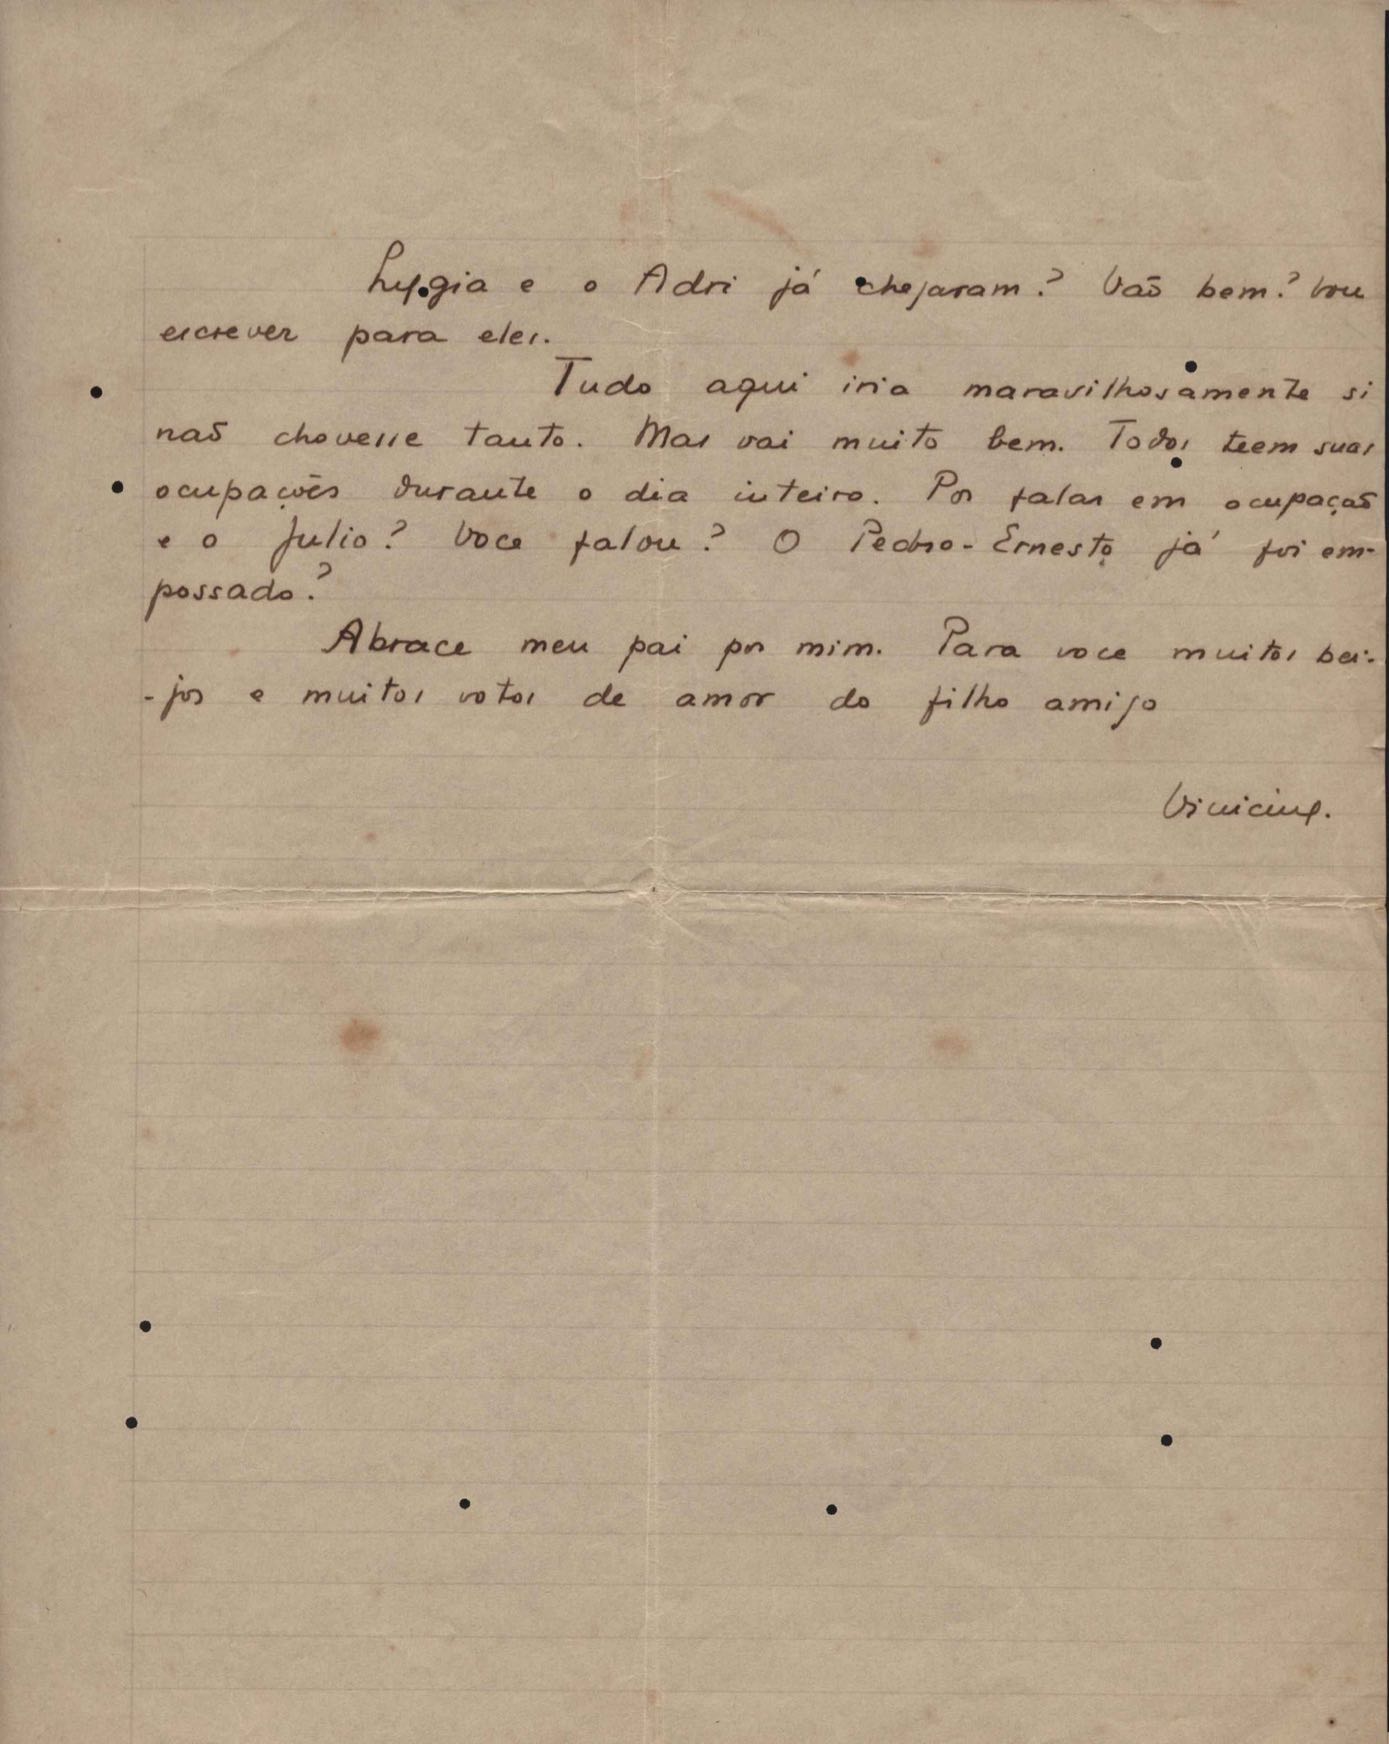 Lygia e o Adri já chegaram? Vão bem? Vou
escrever para eles.
Tudo aqui iria maravilhosamente si
não chovesse tanto. Mas vai muito bem. Todos teem suas
ocupações durante o dia inteiro. Por falar em ocupação
e o Julio? Voce falou? O Pedro-Ernesto já foi em-
possado?
Abrace meu pai por mim. Para voce muitos bei-
-jos e muitos votos de amor do filho amigo
Vinicius.